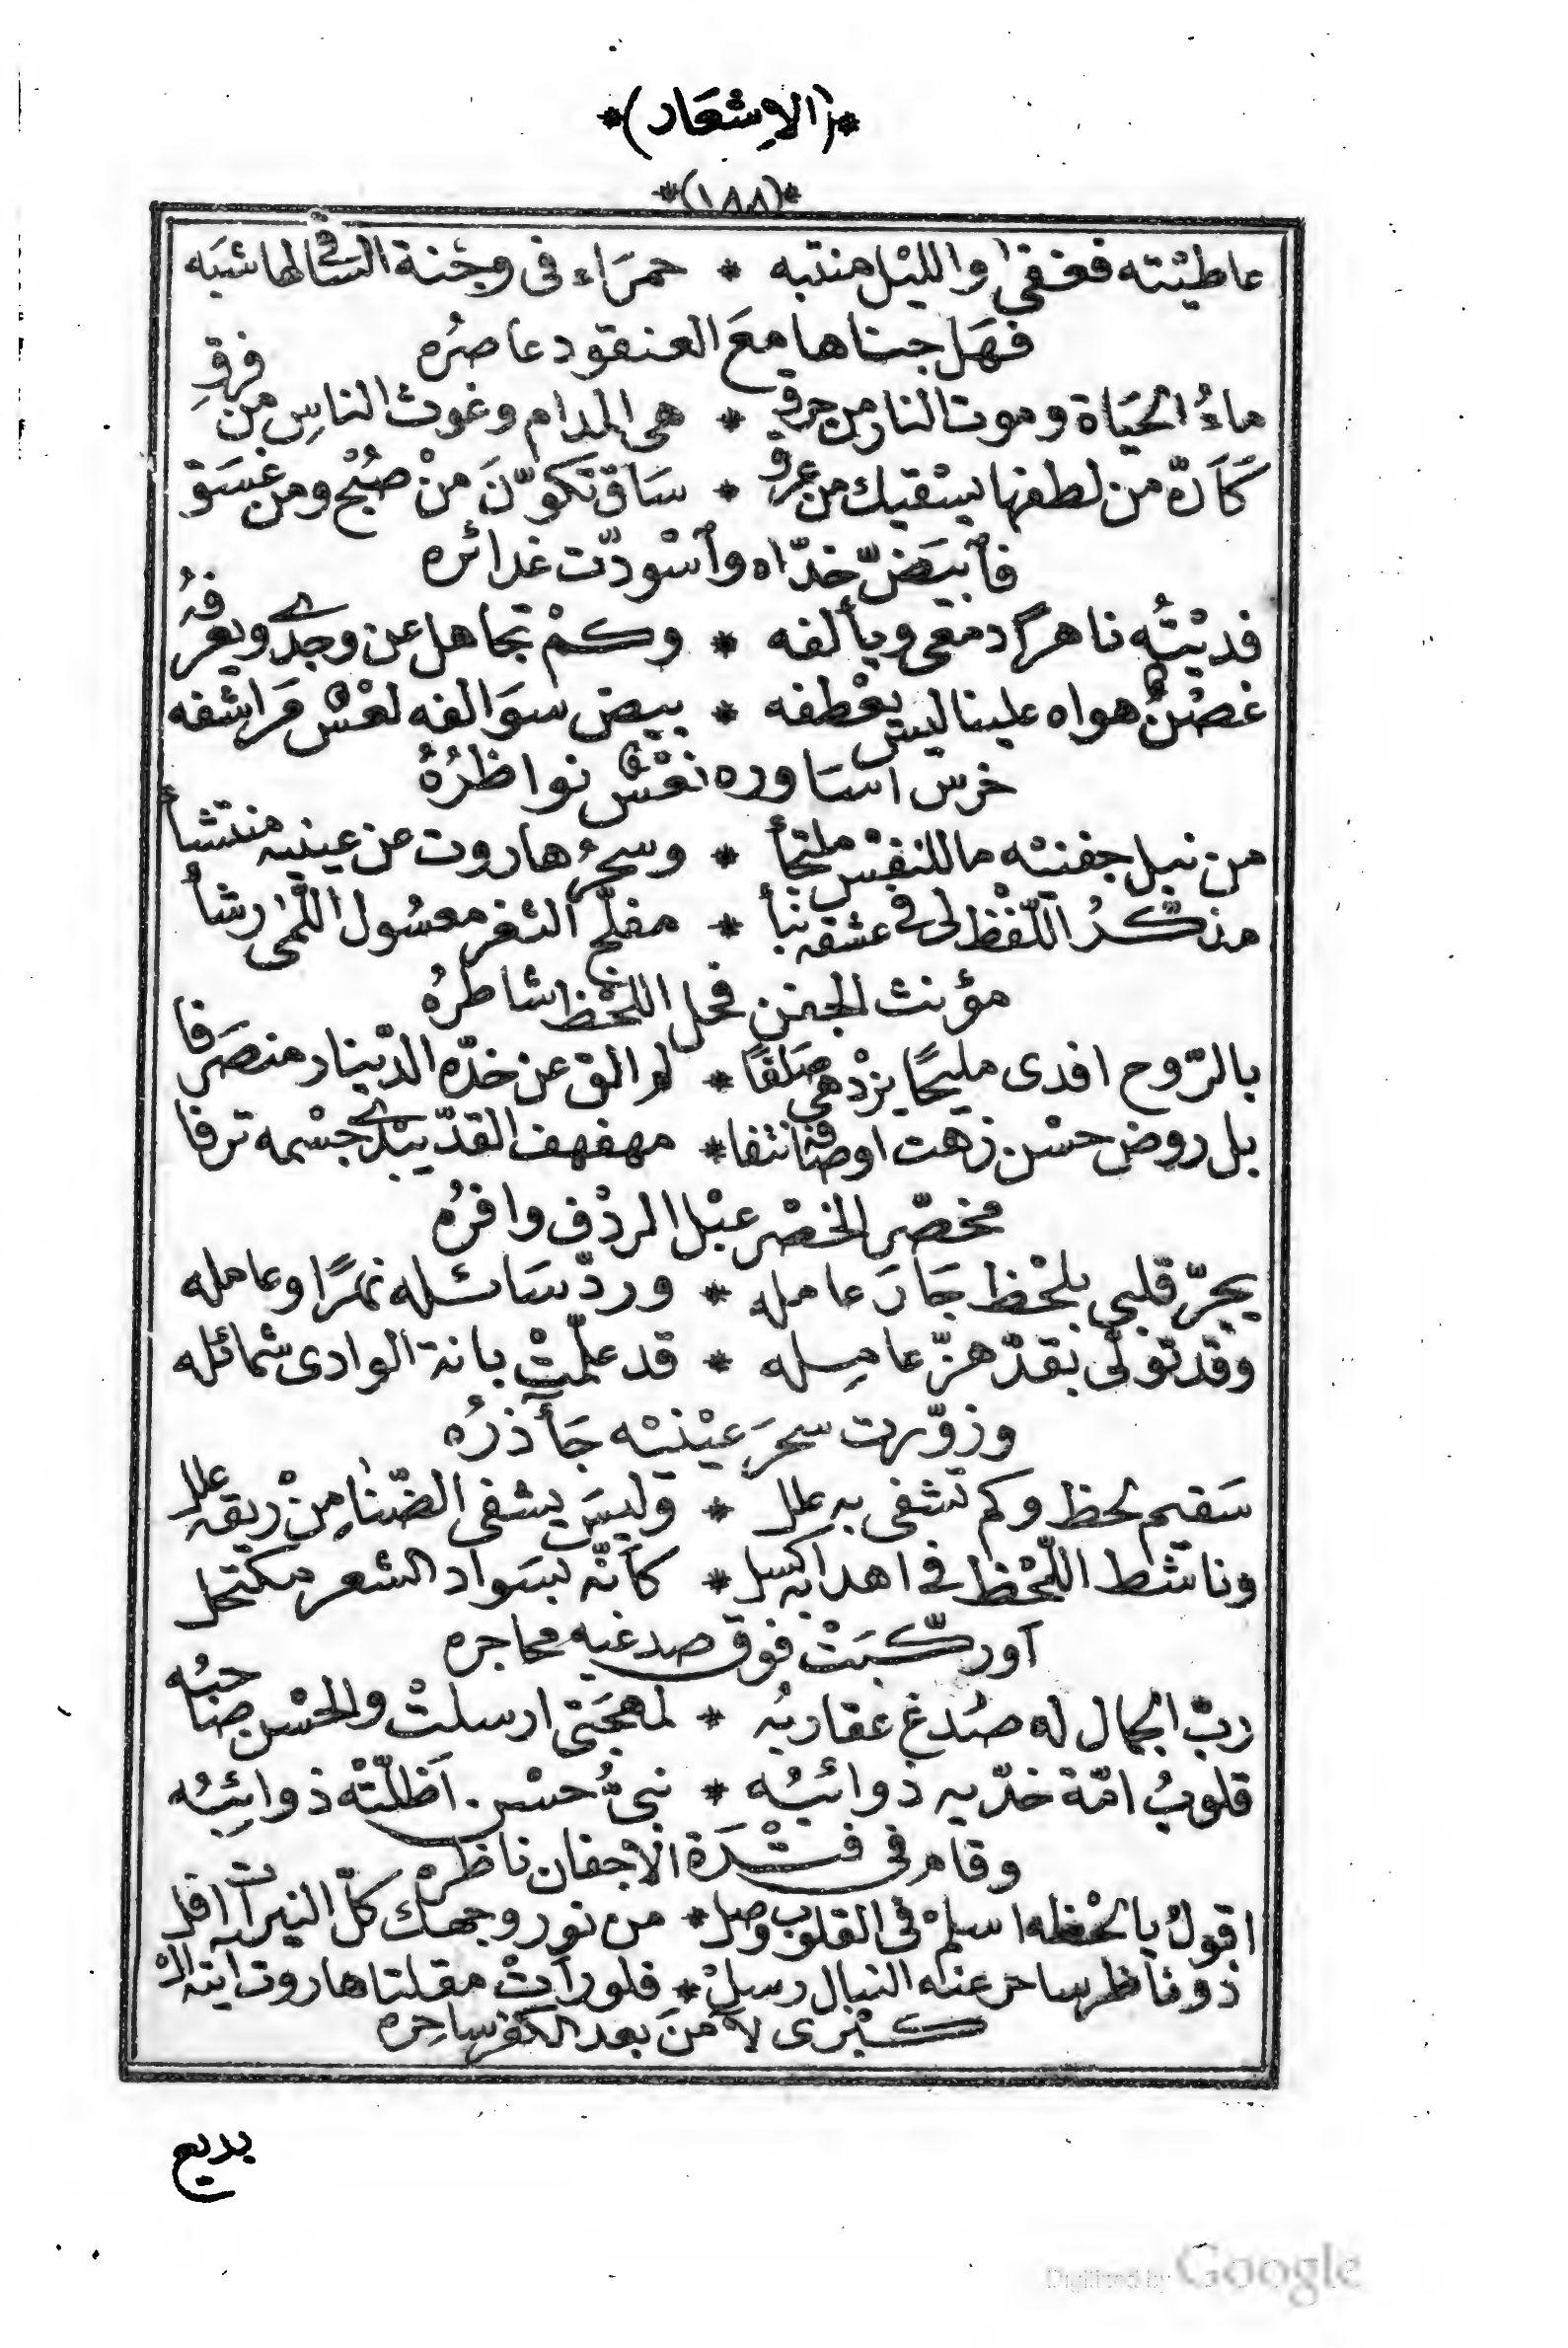 *(الاِشعَار)*
*(١٨٨)*
عاطيْته فغفى والليْل منتبه * حمرَاء فى وجْنة السَّاقى لها شبَه
فهَل جناها معَ العنقود عاصرُه
ماءُ الحيَاة وموت النار من حرق * هى المدام وغوث الناسِ من فرقِ
كَأَنّه من لطفها يسْقيك من عرق * سَاق تكوّنَ منْ صُبْح ومن غسَق
فاَبيَضّ خدّاه واَسْودّت غدائره
فديْتُه ناهرًا دمعى ويألفه * وكمْ تجاهل عن وجدے ويعرفهُ
غصْنٌ هواه علينا ليس يعْطفه * بيض سوَالفه لعْس مَراشفه
خرس اسَاوره نعْس نواظرُهُ
من نبل جفنيْه ما للنفِس ملتجأ * وسحرُ هاروت عن عينيه منتشأ
مذكّرُ اللّفْظ لى فى عشقه نبأ * مفلّج الثغر معسُول اللَّمى رشأ
مؤنث الجفن فحل اللحْظ شاطرُه
بالرّوح افدى مليحًا يزْدهى صَلفًا * لم الق عن خدّه الدّينار منصَرفا
بل روض حسْن زهت اوصَافه نتفا * مهفهف القدّ يبْدے جسْمه ترفا
مخصّر الخصْر عبْل الردْف وافرُه
يجرّ قلبى بلحْظ جَارَ عامله * وردّ سَائله نهرًا وعامله
وقد تولّى بقدّ هزّ عامِله * قد علّمتْ بانة الوادى شمائله
وزوّرت سحرَ عيْنيْه جَآذرُه
سَقيم لحظ وكم تشفى به علل * وليسَ يشفى الضّنا مِنْ ريقه علل
وناشط اللّحْظ فى اهدابه كسل * كأنّه بسَواد الشعر مكتحل
اَوركّبَتْ فوق صدغيه محاجره
ربّ الجمال له صُدغ عقاربُه * لمهجَتى ارسلتْ والحسْن صَاحبُه
قلوبُ امّة خدّيه ذوائبُه * نبىُّ حسْن اَظلّتْه ذوائِبُه
وقام فى فتْرَة الاجفان ناظرهْ
اقولُ يا لحْظه اسلمْ فى القلوب وصل * من نور وجهك كلّ النيرات اقل
ذو ناظر ساحر عنه النبال رسلْ * فلو رأتْ مقلتا هاروت آيته الْ
كبْرى لآمَنَ بعد الكفر ساحِره
بديع
Digitized by Google